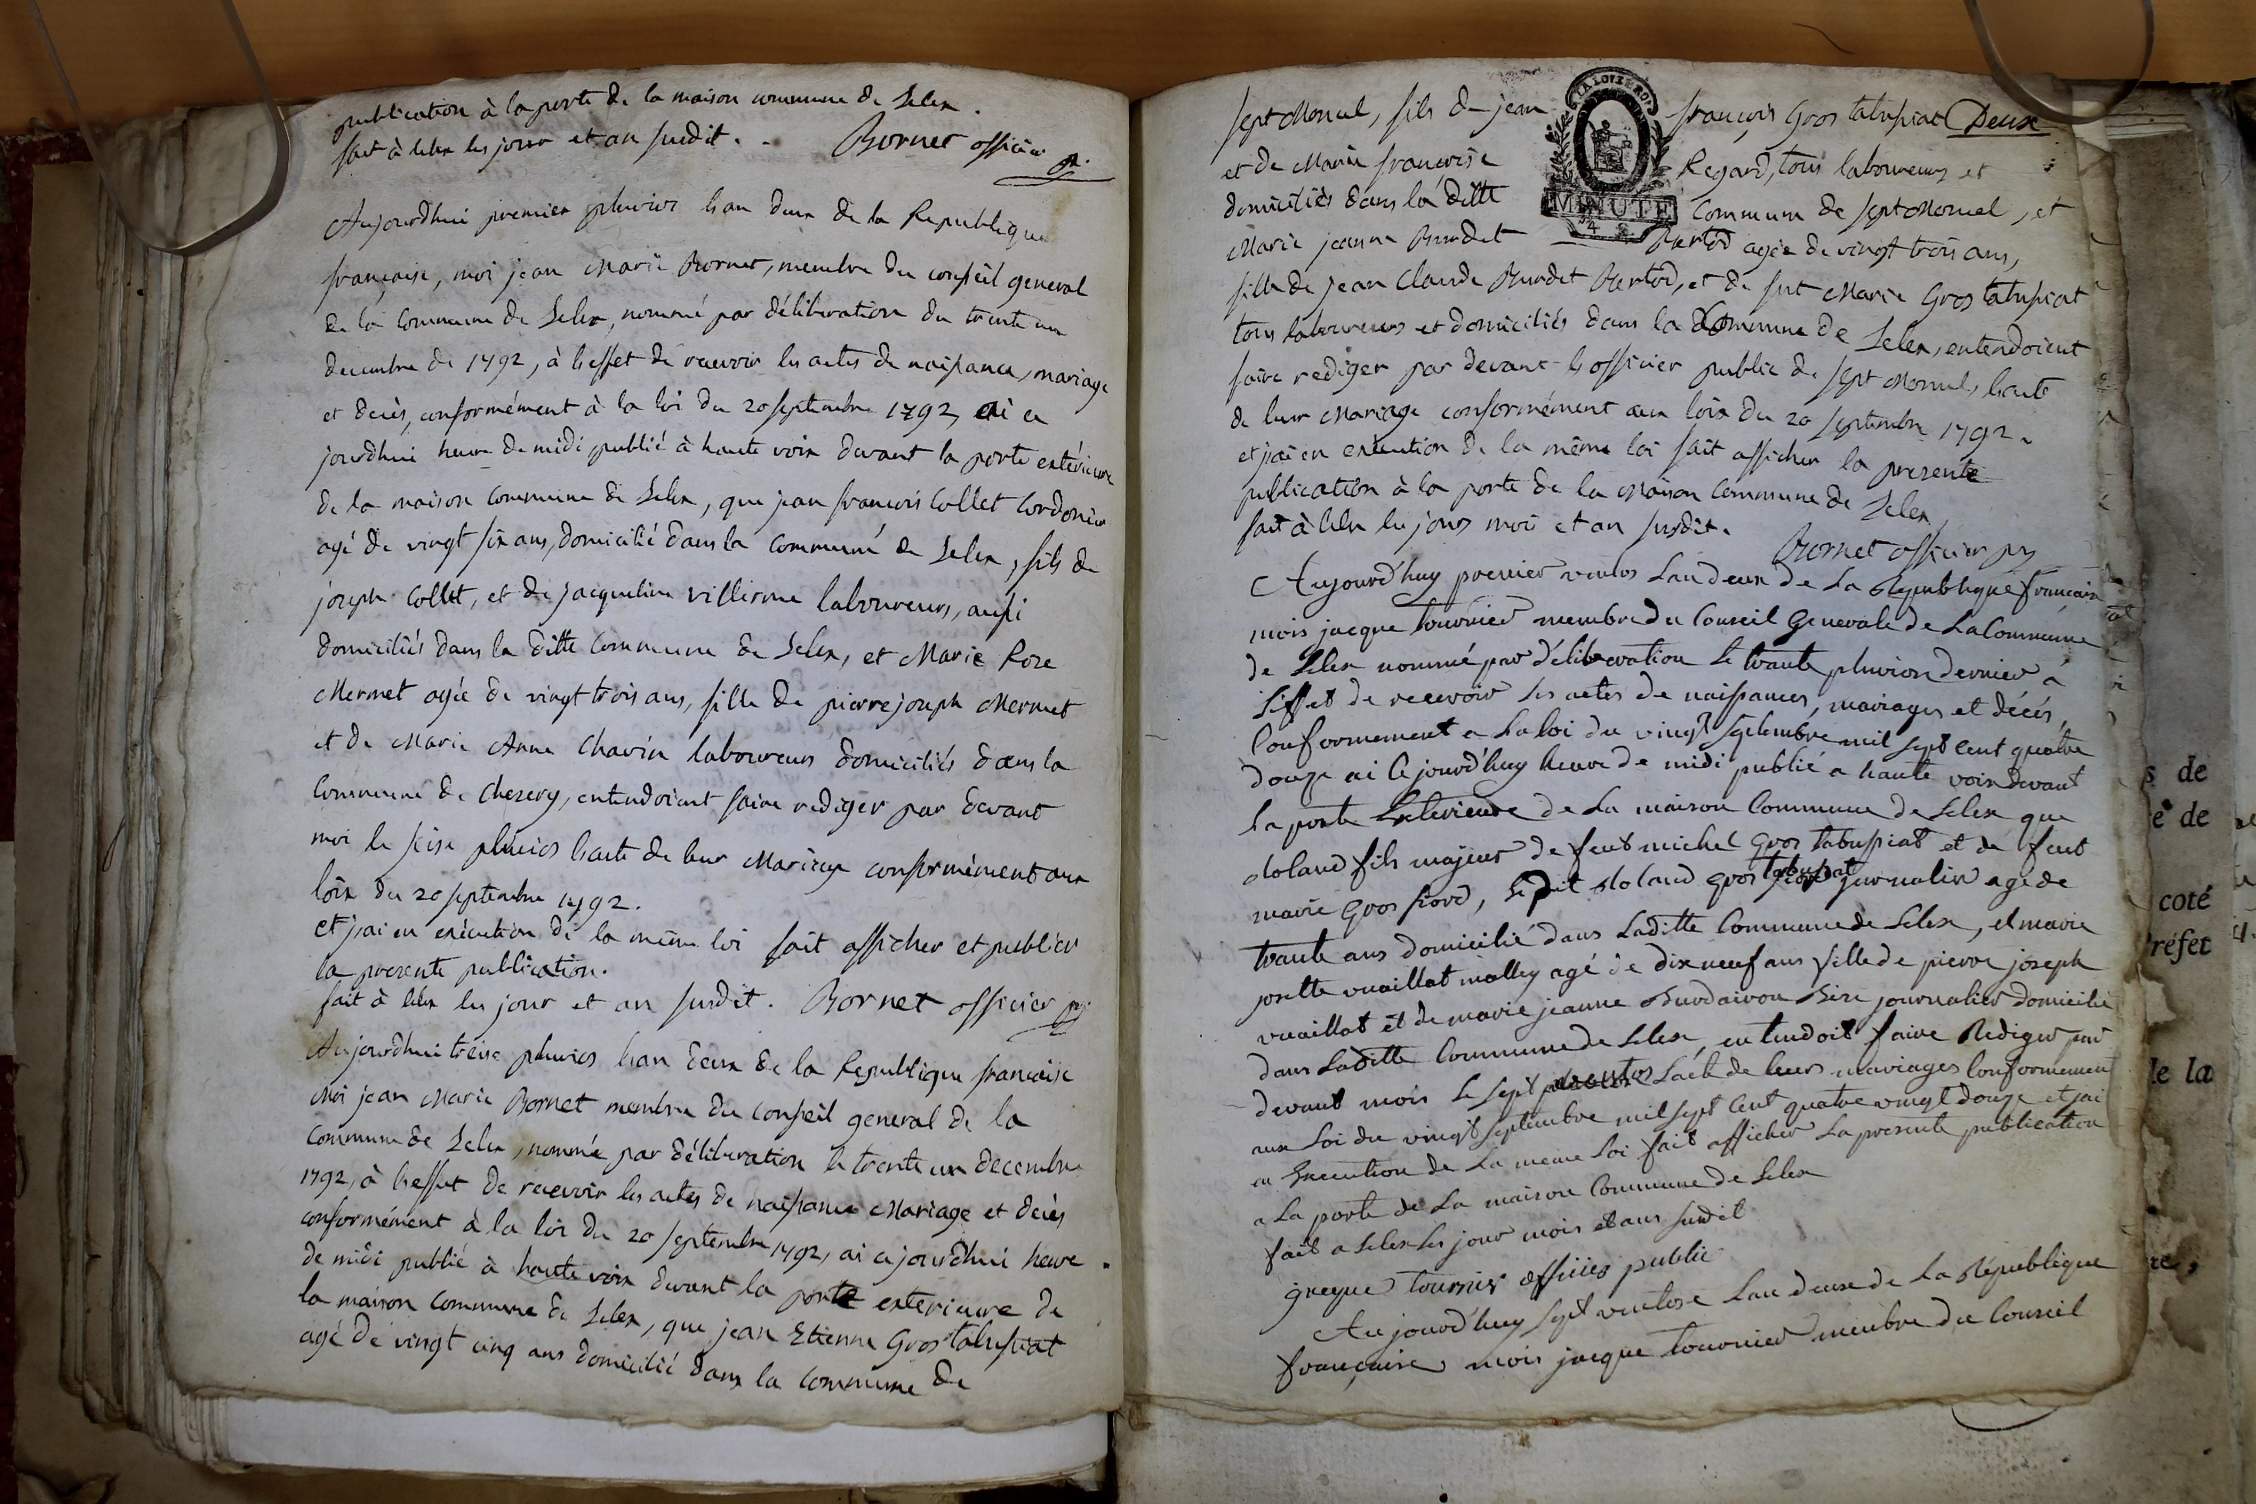 publication à la porte de la maison commune de Lelex.
fait à lelex les jour et an susdit. Bornet officier
Aujourdhui premier pluvios l'an deux de la Republique
française, moi jean Marie Bornet, membre du conseil general
de la Commune de Lelex, nommé par délibération du trente un
decembre de 1792, à l'effet de recevoir les actes de naissance, mariage
et decès, conformément à la loi du 20 septembre 1792, ai ce
jourdhui heure de midi publié à haute voix devant la porte extérieure
de la maison Commune de Lelex, que jean françois Collet Cordonier
agé de vingt six ans, domicilié dans la Commune de Lelex, fils de
joseph Collet, et de jacqueline villierme laboureurs, aussi
domiciliés dans la ditte Commune de Lelex, et Marie Roze
Mermet agée de vingt trois ans, fille de pierre joseph Mermet
et de Marie Anne Chavin laboureurs domiciliés dans la
Commune de Chezery, entendoient faire rediger par devant
moi le seise pluvios l'acte de leur Mariage conformément aux
loix du 20 septembre 1792.
et j'ai en exécution de la même loi fait afficher et publier
la presente publication.
fait à lelex les jour et an susdit. Bornet officier
Aujourdhui treise pluvios l'an deux de la Republique francaise
Moi jean Marie Bornet membre du Conseil general de la
Commune de Lelex, nommé par délibération le trente un decembre
1792, à l'effet de recevoir les actes de naissance Mariage et decès
conformément à la loi du 20 septembre 1792, ai ce jourdhui heure
de midi publié à haute voix devant la porte exterieure de
la maison Commune de Lelex, que jean Etienne Gros tabussiat
agé de vingt cinq ans domicilié dans la Commune de
sept Moncel, fils de jean françois Gros tabussiat Deux
et de Marie francoise Regard, tous laboureurs et
domiciliés dans la ditte Commune de sept Moncel, et
Marie jeanne Burdet Bertod agée de vingt trois ans,
MINUTE
fille de jean Claude Burdet Bertod, et de fut Marie Gros tabusiat
tous laboureurs et domiciliés dans la Commune de Lelex, entendoient
faire rediger par devant l'officier public de sept Moncel, l'acte
de leur Mariage conformément aux loix du 20 septembre 1792.
et j'ai en exécution de la même loi fait afficher la presente
publication à la porte de la Maison Commune de Lelex
fait à lelex les jours mois et an susdit.
Bornet officier
Aujourd'huy premier ventos Lan deux de La Republique francaise
mois jacque tournier membre du Conseil Generale de La Commune
de Lelex nommé par délibération Le trante pluvios dernier a
l'effet de recevoir Les actes de naissances, mariages et décés,
Conformement a La loi du vingt septembre mil sept cent quatre
douze ai Ce jourd'huy heure de midi publié a haute voix devant
La porte Exterieure de La maison Commune de Lelex que
Roland fils majeur de feut michel gros tabussiat et de feut
marie gros fiord, Le dit Roland gros tabusiat journalier age de
trante ans domicilié dans Laditte Commune de Lelex, et marie
josette vuaillat molley agé de dix neuf ans fille de pierre joseph
vuaillat et de marie jeanne journalier domicilié
dans Laditte Commune de Lelex, entendoit faire Rediger par
devant mois Le sept ventos Lacte de leurs mariages Conformement
aux Loi du vingt septembre mil sept Cent quatre vingt douze et jai
en Execution de La meme Loi fait afficher La presente publication
a La porte de La maison Commune de Lelex
fait a Lelex Les jour mois et ans susdit
tournier officier public
Aujourd'huy sept ventose Lan deuxe de La République
françaisse mois jacque tournier membre du Conseil
s de
e de
coté
réfet
de la
re,